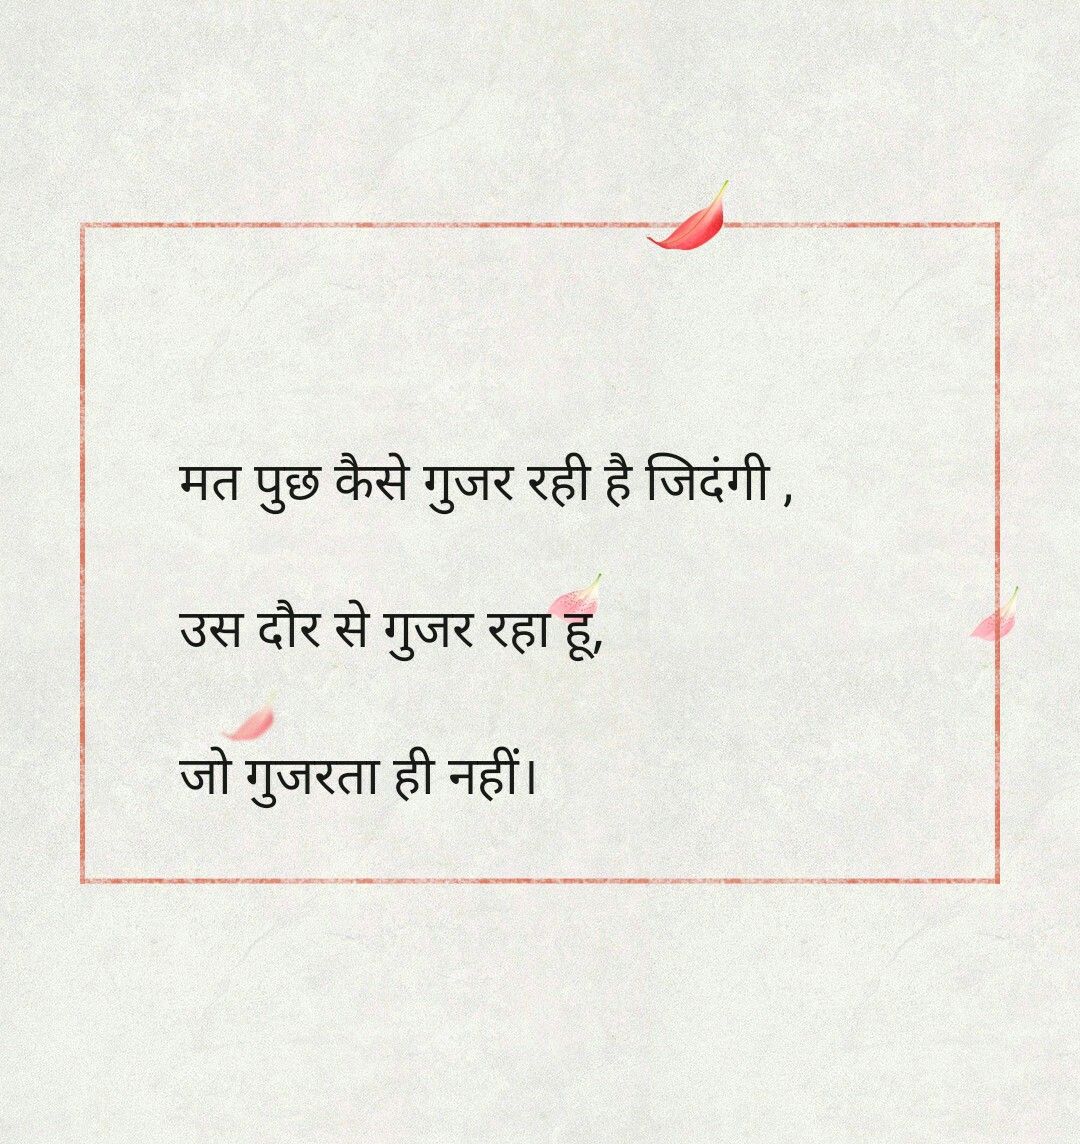 मत पुछ कैसे गुजर रही है जिदंगी ,
उस दौर से गुजर रहा हू,
जो गुजरता ही नहीं।